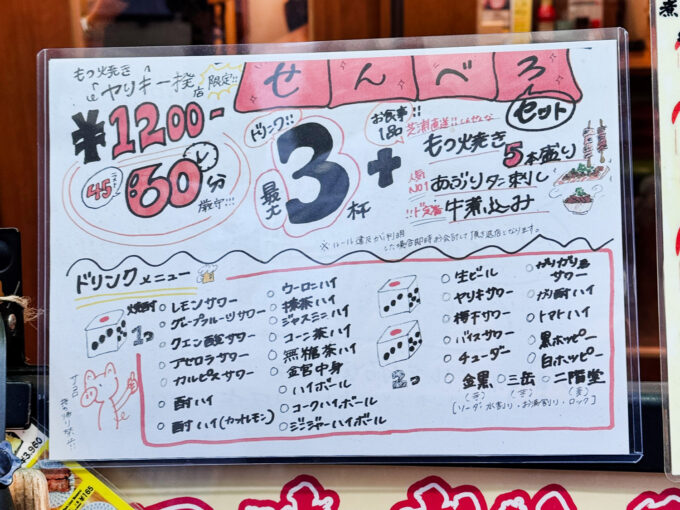 もつ焼き
ヤリキ一揆
店
限定!!
せんべろ
セット
¥1200-
ラスト
45
60分
厳守!!!
ドリンク!!
最大
3杯
+
お食事!!
1品
芝浦直送!!
もつ焼き
5本盛り
人気
No1
あぶりタン刺し
!!ド定番
牛煮込み
ドリンクメニュー
焼酎
1コ
レモンサワー
グレープフルーツサワー
クエン酸サワー
アセロラサワー
カルピスサワー
酎ハイ
酎ハイ(カットレモン)
ウーロンハイ
緑茶ハイ
ジャスミンハイ
コーン茶ハイ
無糖茶ハイ
金宮中身
ハイボール
コークハイボール
ジンジャーハイボール
2コ
生ビール
ヤリキサワー
梅干サワー
バイスサワー
チューダー
ガリガリ君
サワー
ガリ酎ハイ
トマトハイ
黒ホッピー
白ホッピー
金黒
(芋)
三岳
(芋)
二階堂
(麦)
[ソーダ・水割り・お湯割り・ロック]
サイコロ
¥3,960